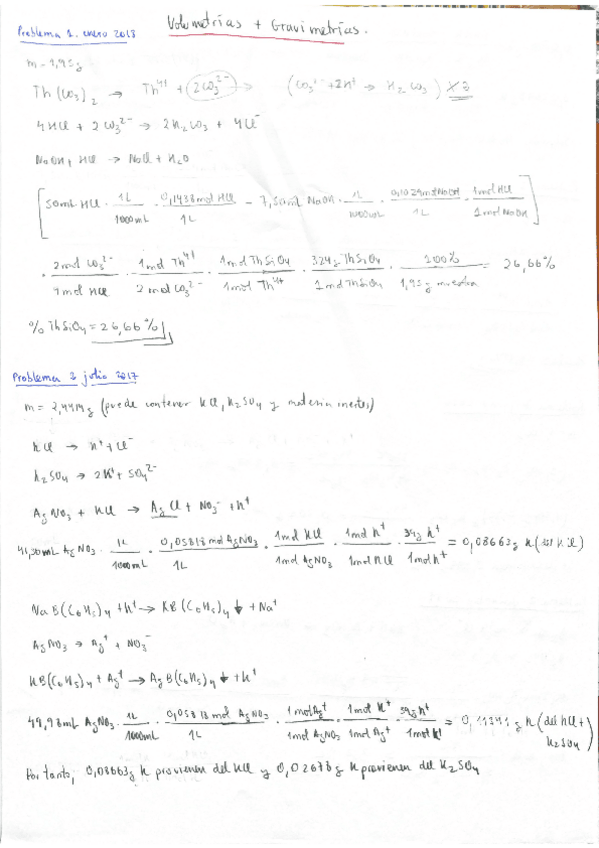 Volumetrías + Gravimetrías.
Problema 1. enero 2013
m = 1,95g
Th(CO3)2 → Th4+ + 2CO3 2- → (CO3 2- + 2H+ → H2CO3) x2
4HCl + 2CO3 2- → 2H2CO3 + 4Cl-
NaOH + HCl → NaCl + H2O
[50mL HCl · 1L/1000mL · 0,1438mol HCl/1L - 7,50mL NaOH · 1L/1000mL · 0,1029mol NaOH/1L · 1mol HCl/1mol NaOH]
· 2mol CO3 2-/4mol HCl · 1mol Th4+/2mol CO3 2- · 1mol ThSiO4/1mol Th4+ · 324g ThSiO4/1mol ThSiO4 · 100%/1,95g muestra = 26,66%
% ThSiO4 = 26,66%
Problema 2 julio 2017
m = 2,4414g (puede contener KCl, K2SO4 y materia inertes)
KCl → K+ + Cl-
K2SO4 → 2K+ + SO4 2-
AgNO3 + KCl → AgCl + NO3- + K+
mL AgNO3 · 1L/1000mL · 0,05818mol AgNO3/1L · 1mol KCl/1mol AgNO3 · 1mol K+/1mol KCl · 39g K+/1mol K+ = 0,08663g K
NaB(C6H5)4 + K+ → KB(C6H5)4 ↓ + Na+
AgNO3 → Ag+ + NO3-
KB(C6H5)4 + Ag+ → AgB(C6H5)4 ↓ + K+
49,98mL AgNO3 · 1L/1000mL · 0,05818mol AgNO3/1L · 1mol Ag+/1mol AgNO3 · 1mol K+/1mol Ag+ · 39g K+/1mol K+ = 0,11341g K (del KCl + K2SO4)
Por tanto, 0,08663g K provienen del KCl y 0,02678g K provienen del K2SO4